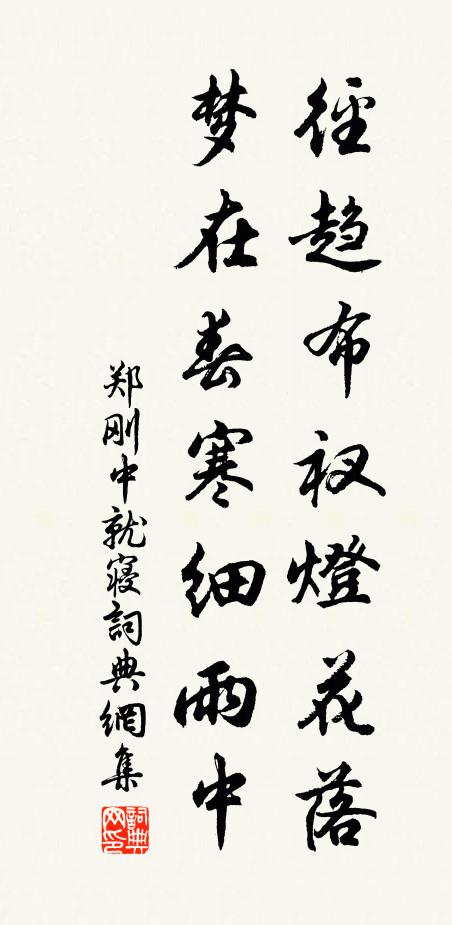 徑趋布衩燈花落
梦在春寒细雨中
郑刚中就寝詞典網集
詞典网印